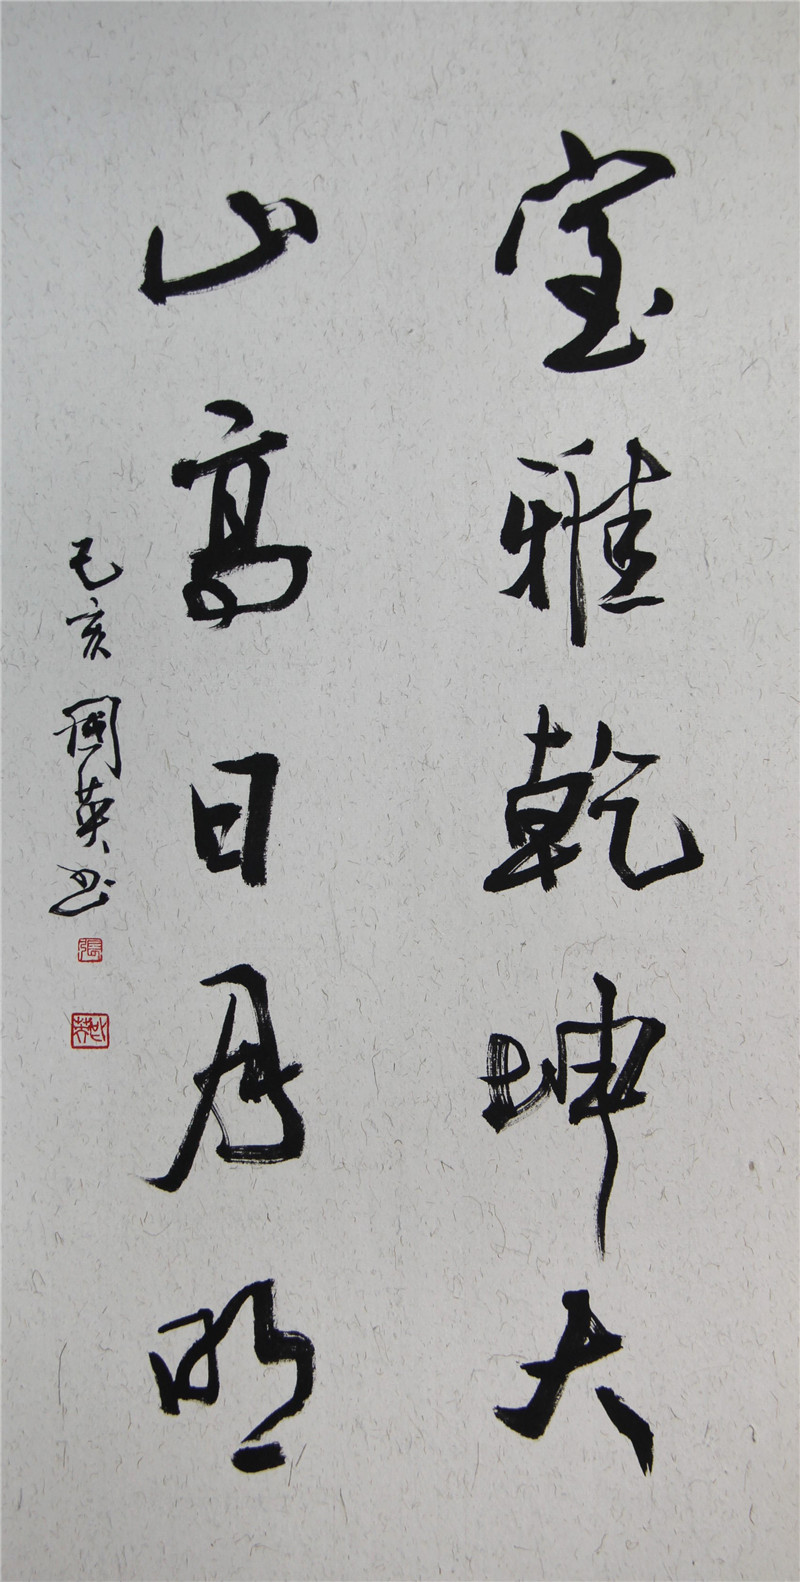 室雅乾坤大
山高日月明
己亥 英书
張